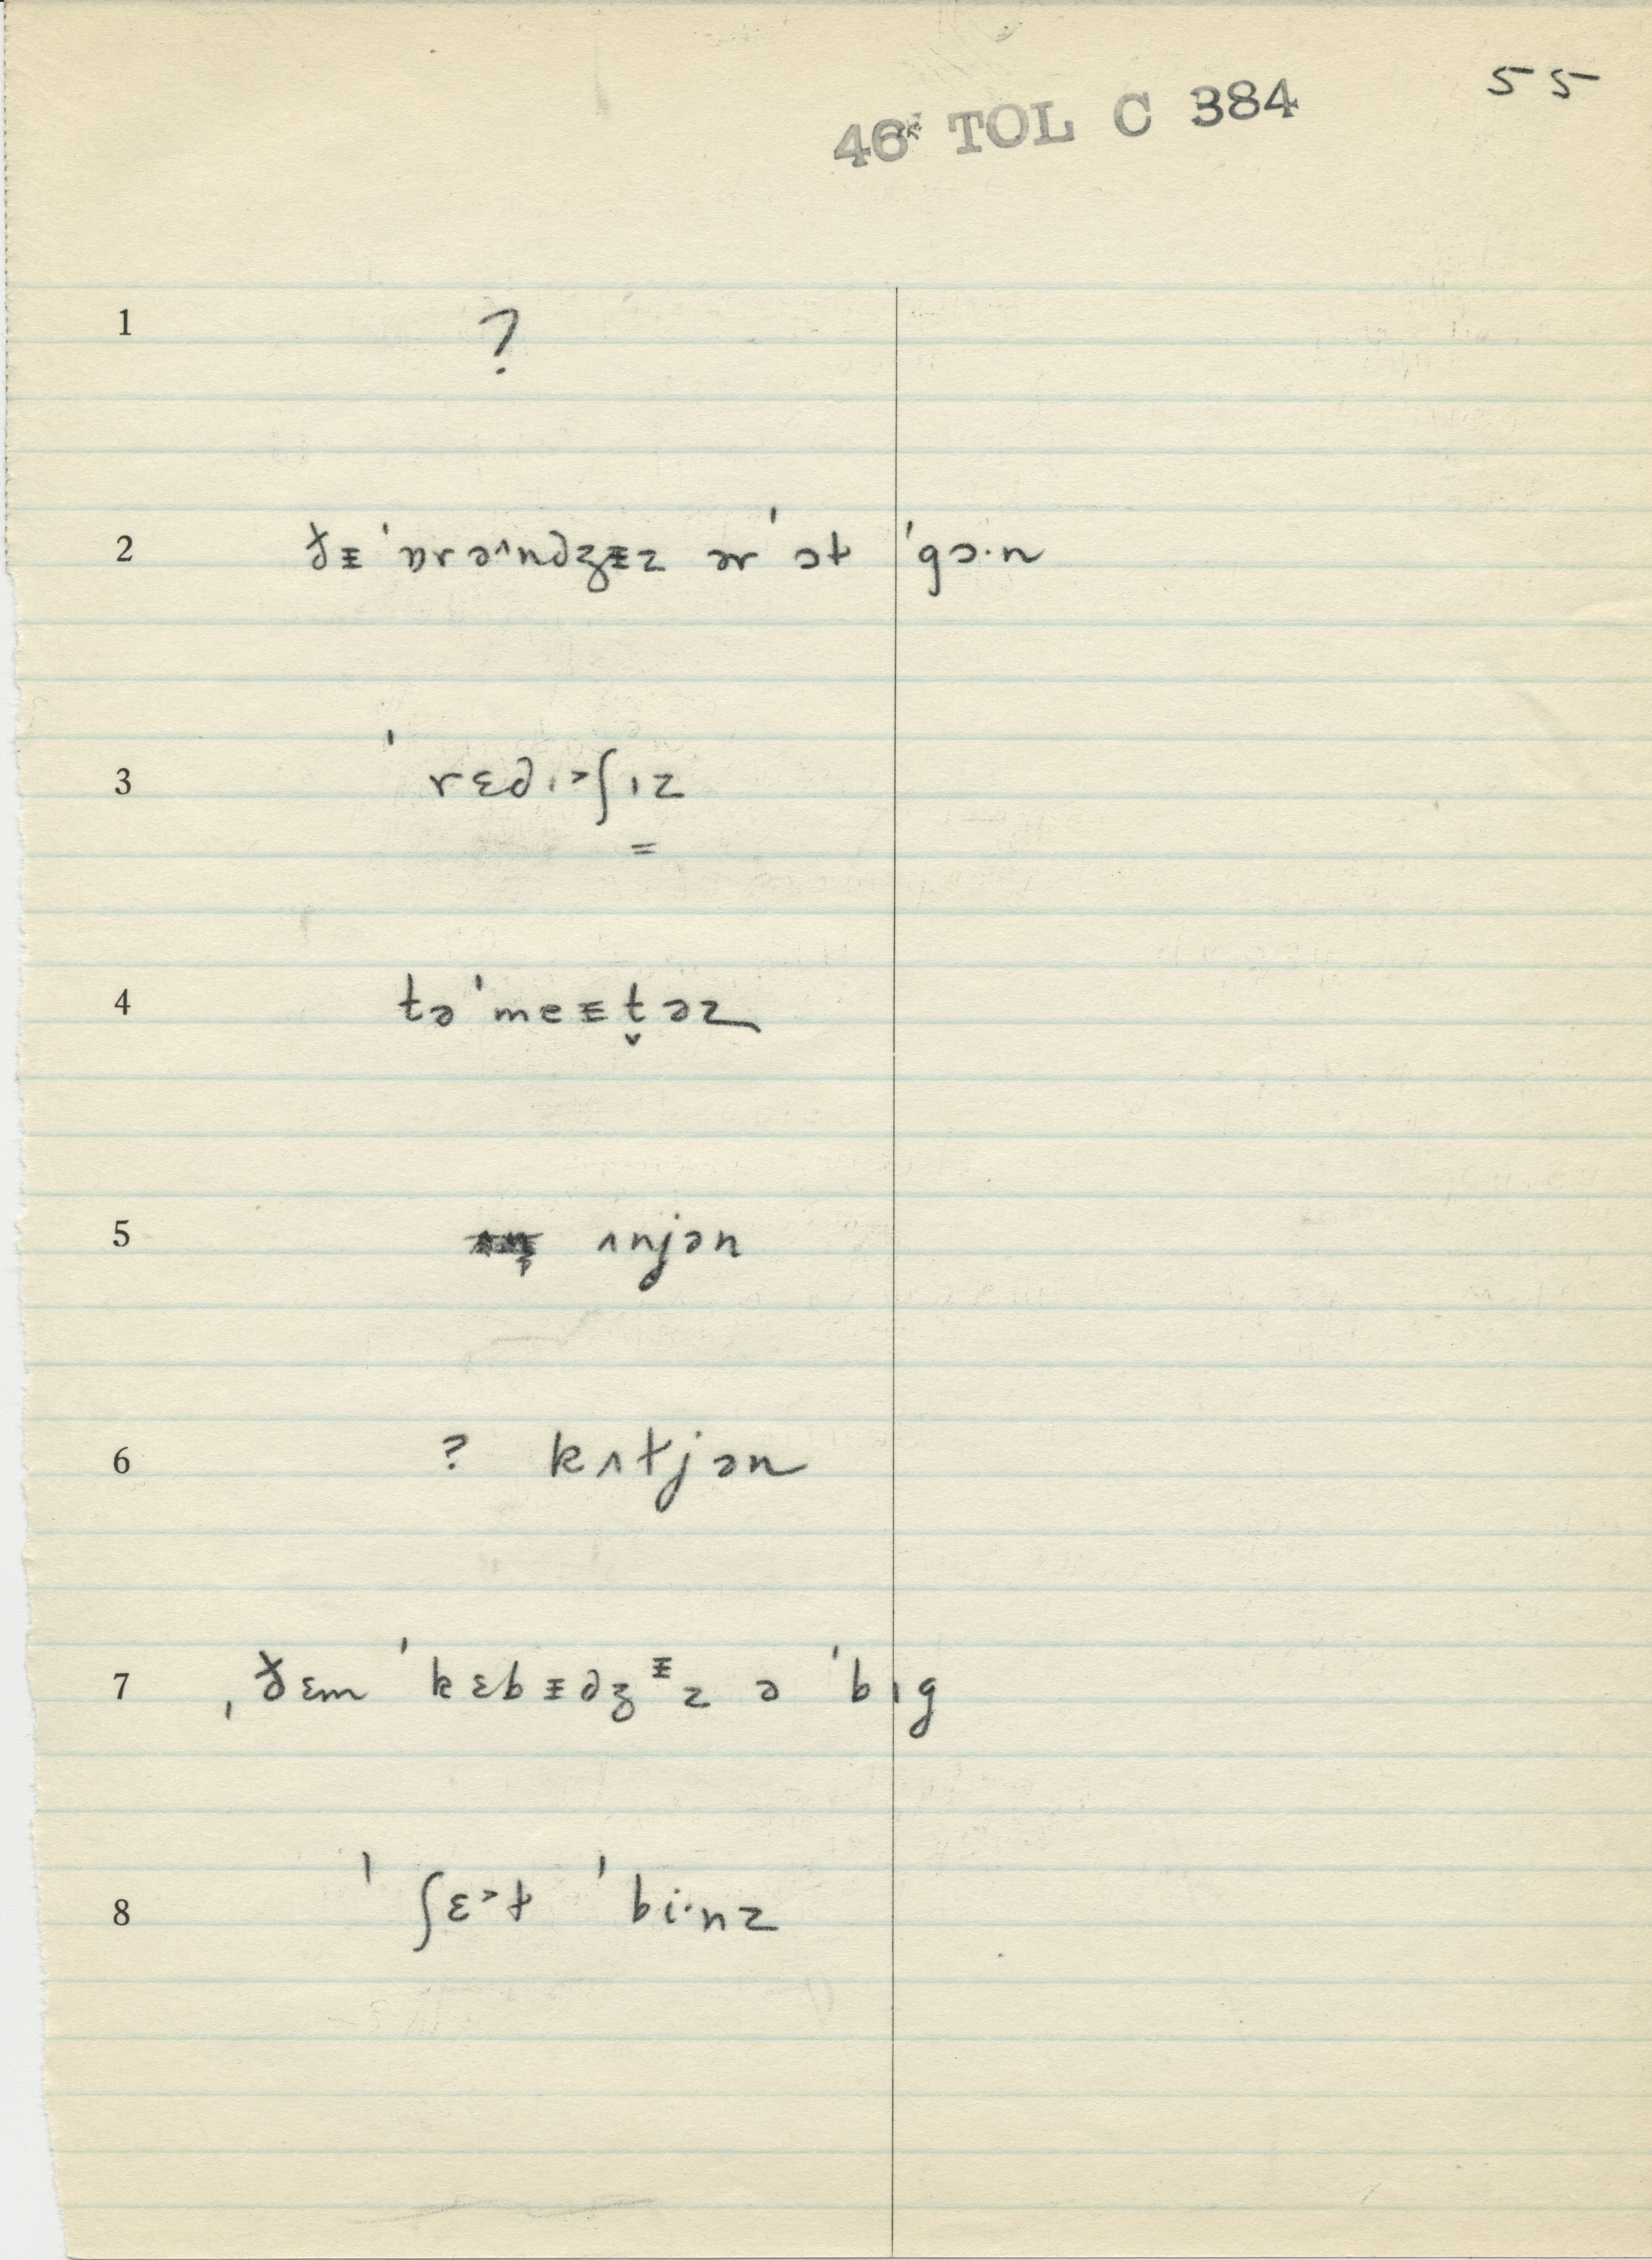 55
46 TOL C 384
1 ?
2 ðᵻ ˈɒrə^ndʒᵻz ər ˈɔt ˈgɔ·n
3 ˈrɛdɪ˃ʃɪz
4 təˈmeᵻt̬əz
5 ʌnjən
6 ? kʌtjən
7 ˌðɛm ˈkɛbᵻdʒᵻz ə ˈbɪg
8 ˈʃɛ˃ɫ ˈbi·nz